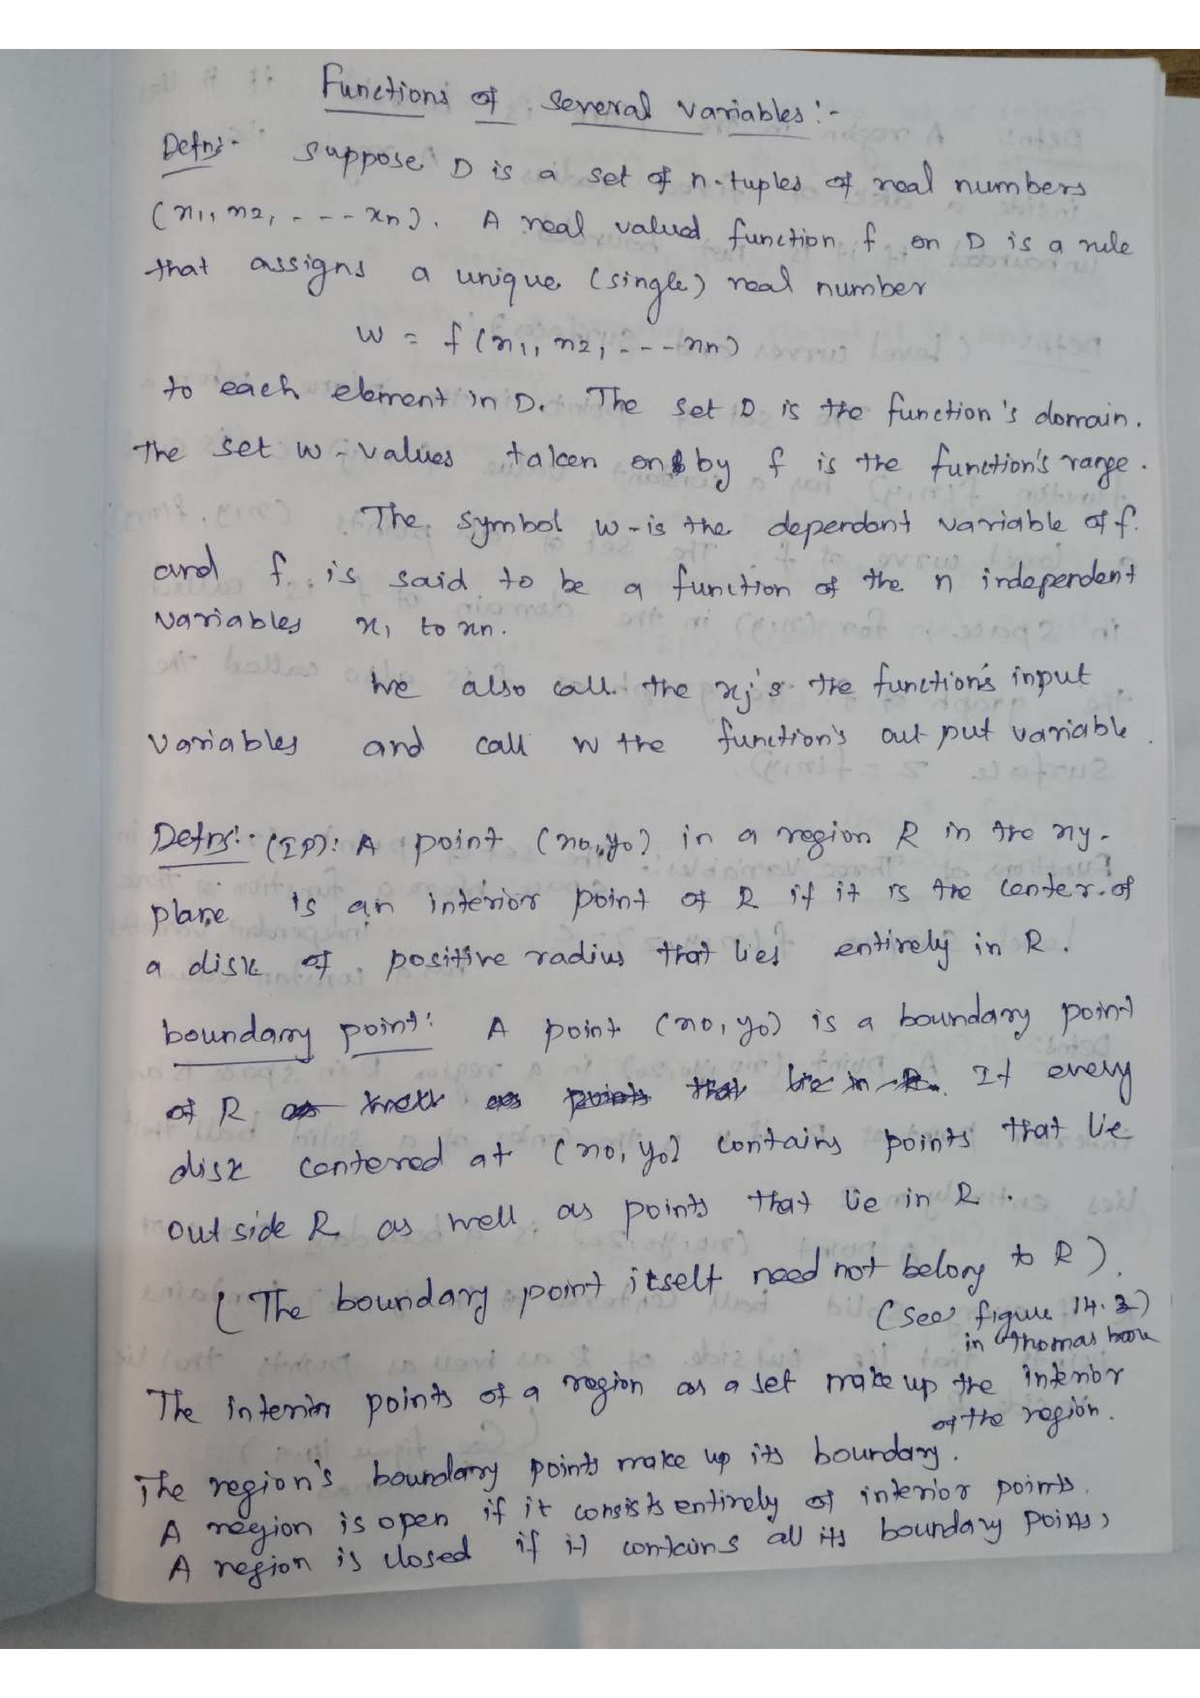 Functions of Several Variables:-
Defn:- Suppose D is a set of n-tuples of real numbers
(x1, x2, - - - xn). A real valued function f on D is a rule
that assigns a unique (single) real number
w = f(x1, x2, - - - xn)
to each element in D. The set D is the function's domain.
The set w-values taken on by f is the function's range.
The symbol w-is the dependent variable of f.
and f is said to be a function of the n independent
variables x1 to xn.
We also call the xj's the function's input
variables and call w the function's out put variable.
Defn:- (IP): A point (x0,y0) in a region R in the xy-
plane is an interior point of R if it is the center of
a disk of positive radius that lies entirely in R.
boundary point: A point (x0, y0) is a boundary point
of R as well as points that lie in R. If every
disk centered at (x0, y0) contains points that lie
outside R as well as points that lie in R.
(The boundary point itself need not belong to R).
(See figure 14.2)
in Thomas book
The interior points of a region as a set make up the interior
of the region.
The region's boundary points make up its boundary.
A region is open if it consists entirely of interior points.
A region is closed if it contains all its boundary points,